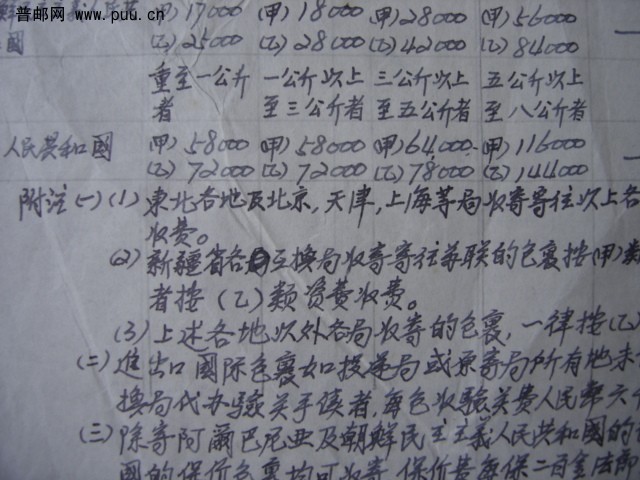 普邮网 www.puu.cn
(甲)17000 (甲)18000 (甲)28000 (甲)56000
國 (乙)25000 (乙)28000 (乙)42000 (乙)84000
重至一公斤 一公斤以上 三公斤以上 五公斤以上
者 至三公斤者 至五公斤者 至八公斤者
人民共和國 (甲)58000 (甲)58000 (甲)64000 (甲)116000
(乙)72000 (乙)72000 (乙)78000 (乙)144000
附注(一)(1) 東北各地及北京,天津,上海等局收寄寄往以上各
收费。
(2) 新疆省各局互換局收寄寄往苏联的包裹按(甲)類
者按(乙)類资费收费。
(3) 上述各地以外各局收寄的包裹,一律按(乙)
(二) 進出口國际包裹如投递局或原寄局所有地未
換局代办驗关手续者,每包收驗关费人民幣六千
(三) 除寄阿爾巴尼亚及朝鮮民主主義人民共和國的
國的保价包裹均可收寄 保价费每保二百金法郎